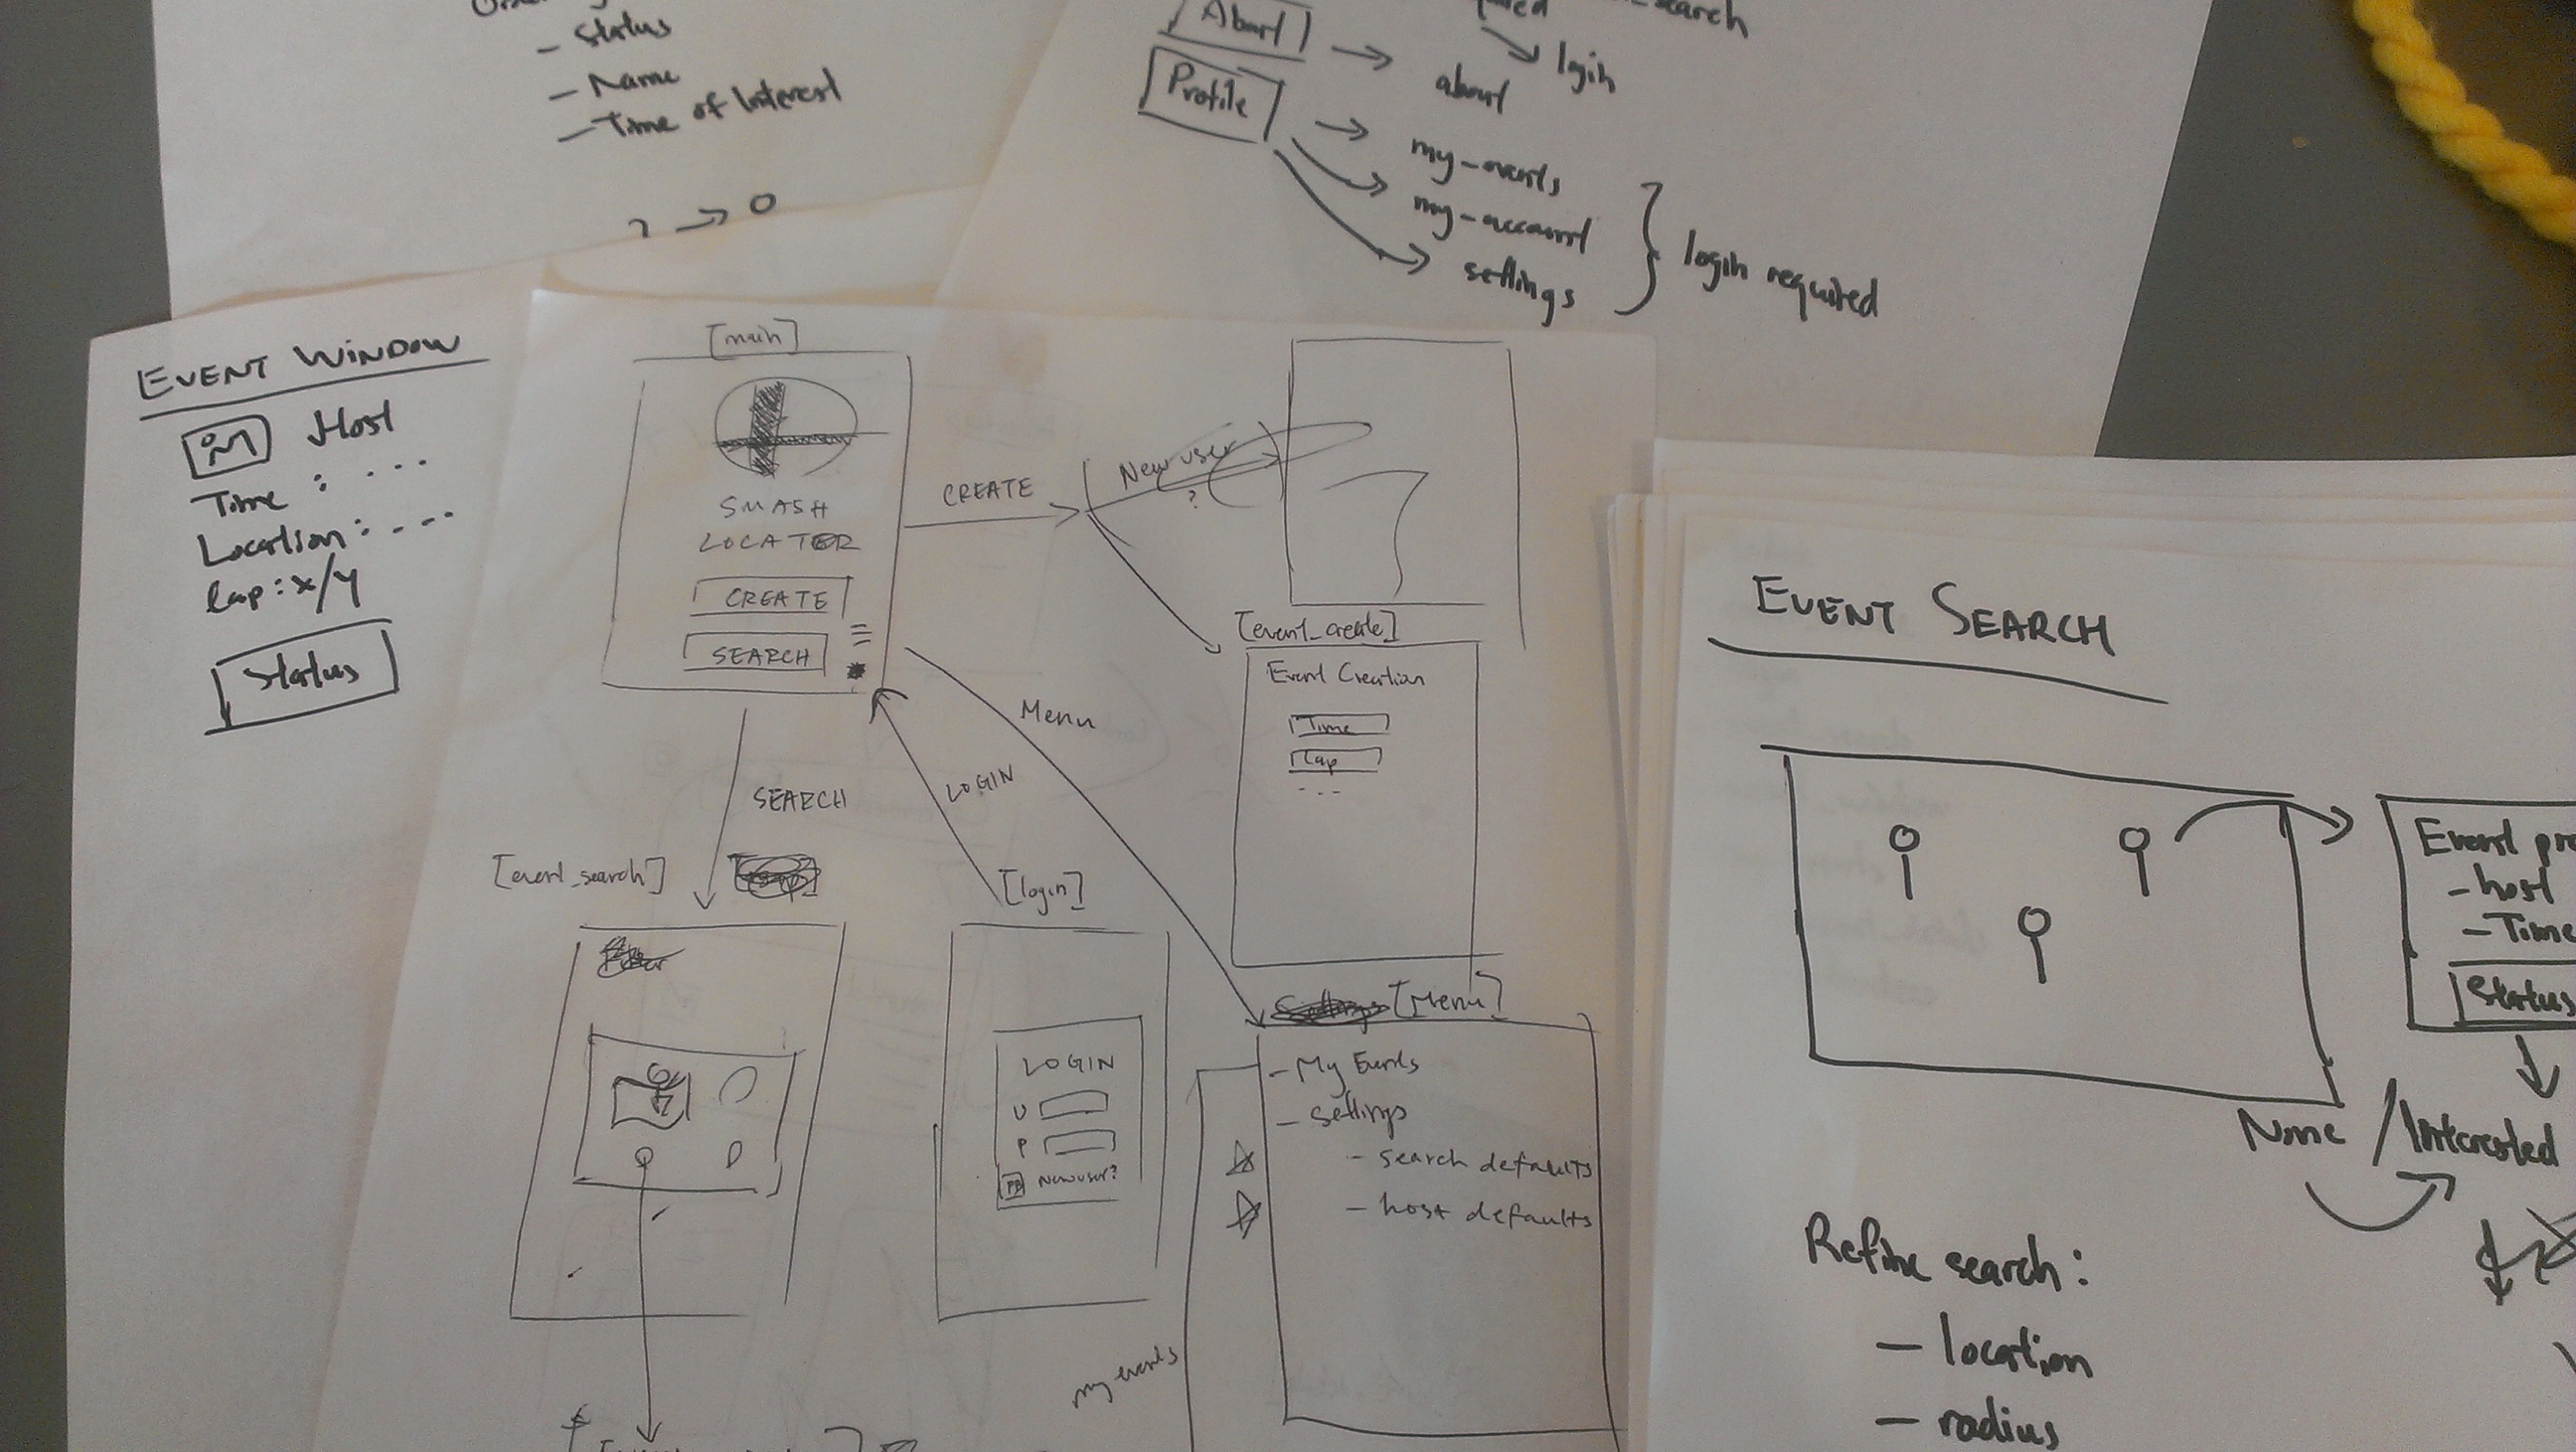 - Status
- Name
- Time of Interest
? → 0
search
About → about
login
Profile → my_events
my_account
settings
login required
EVENT WINDOW
Host
Time : ...
Location : ...
Cap : x/y
Status
[main]
SMASH
LOCATER
CREATE
SEARCH
CREATE
New user
?
[event_create]
Event Creation
Time
Cap
...
Menu
LOGIN
SEARCH
[event_search]
[login]
LOGIN
U
P
New user?
[Menu]
- My Events
- settings
- search defaults
- host defaults
my events
EVENT SEARCH
Event
- host
- Time
Status
None / Interested
Refine search :
- location
- radius